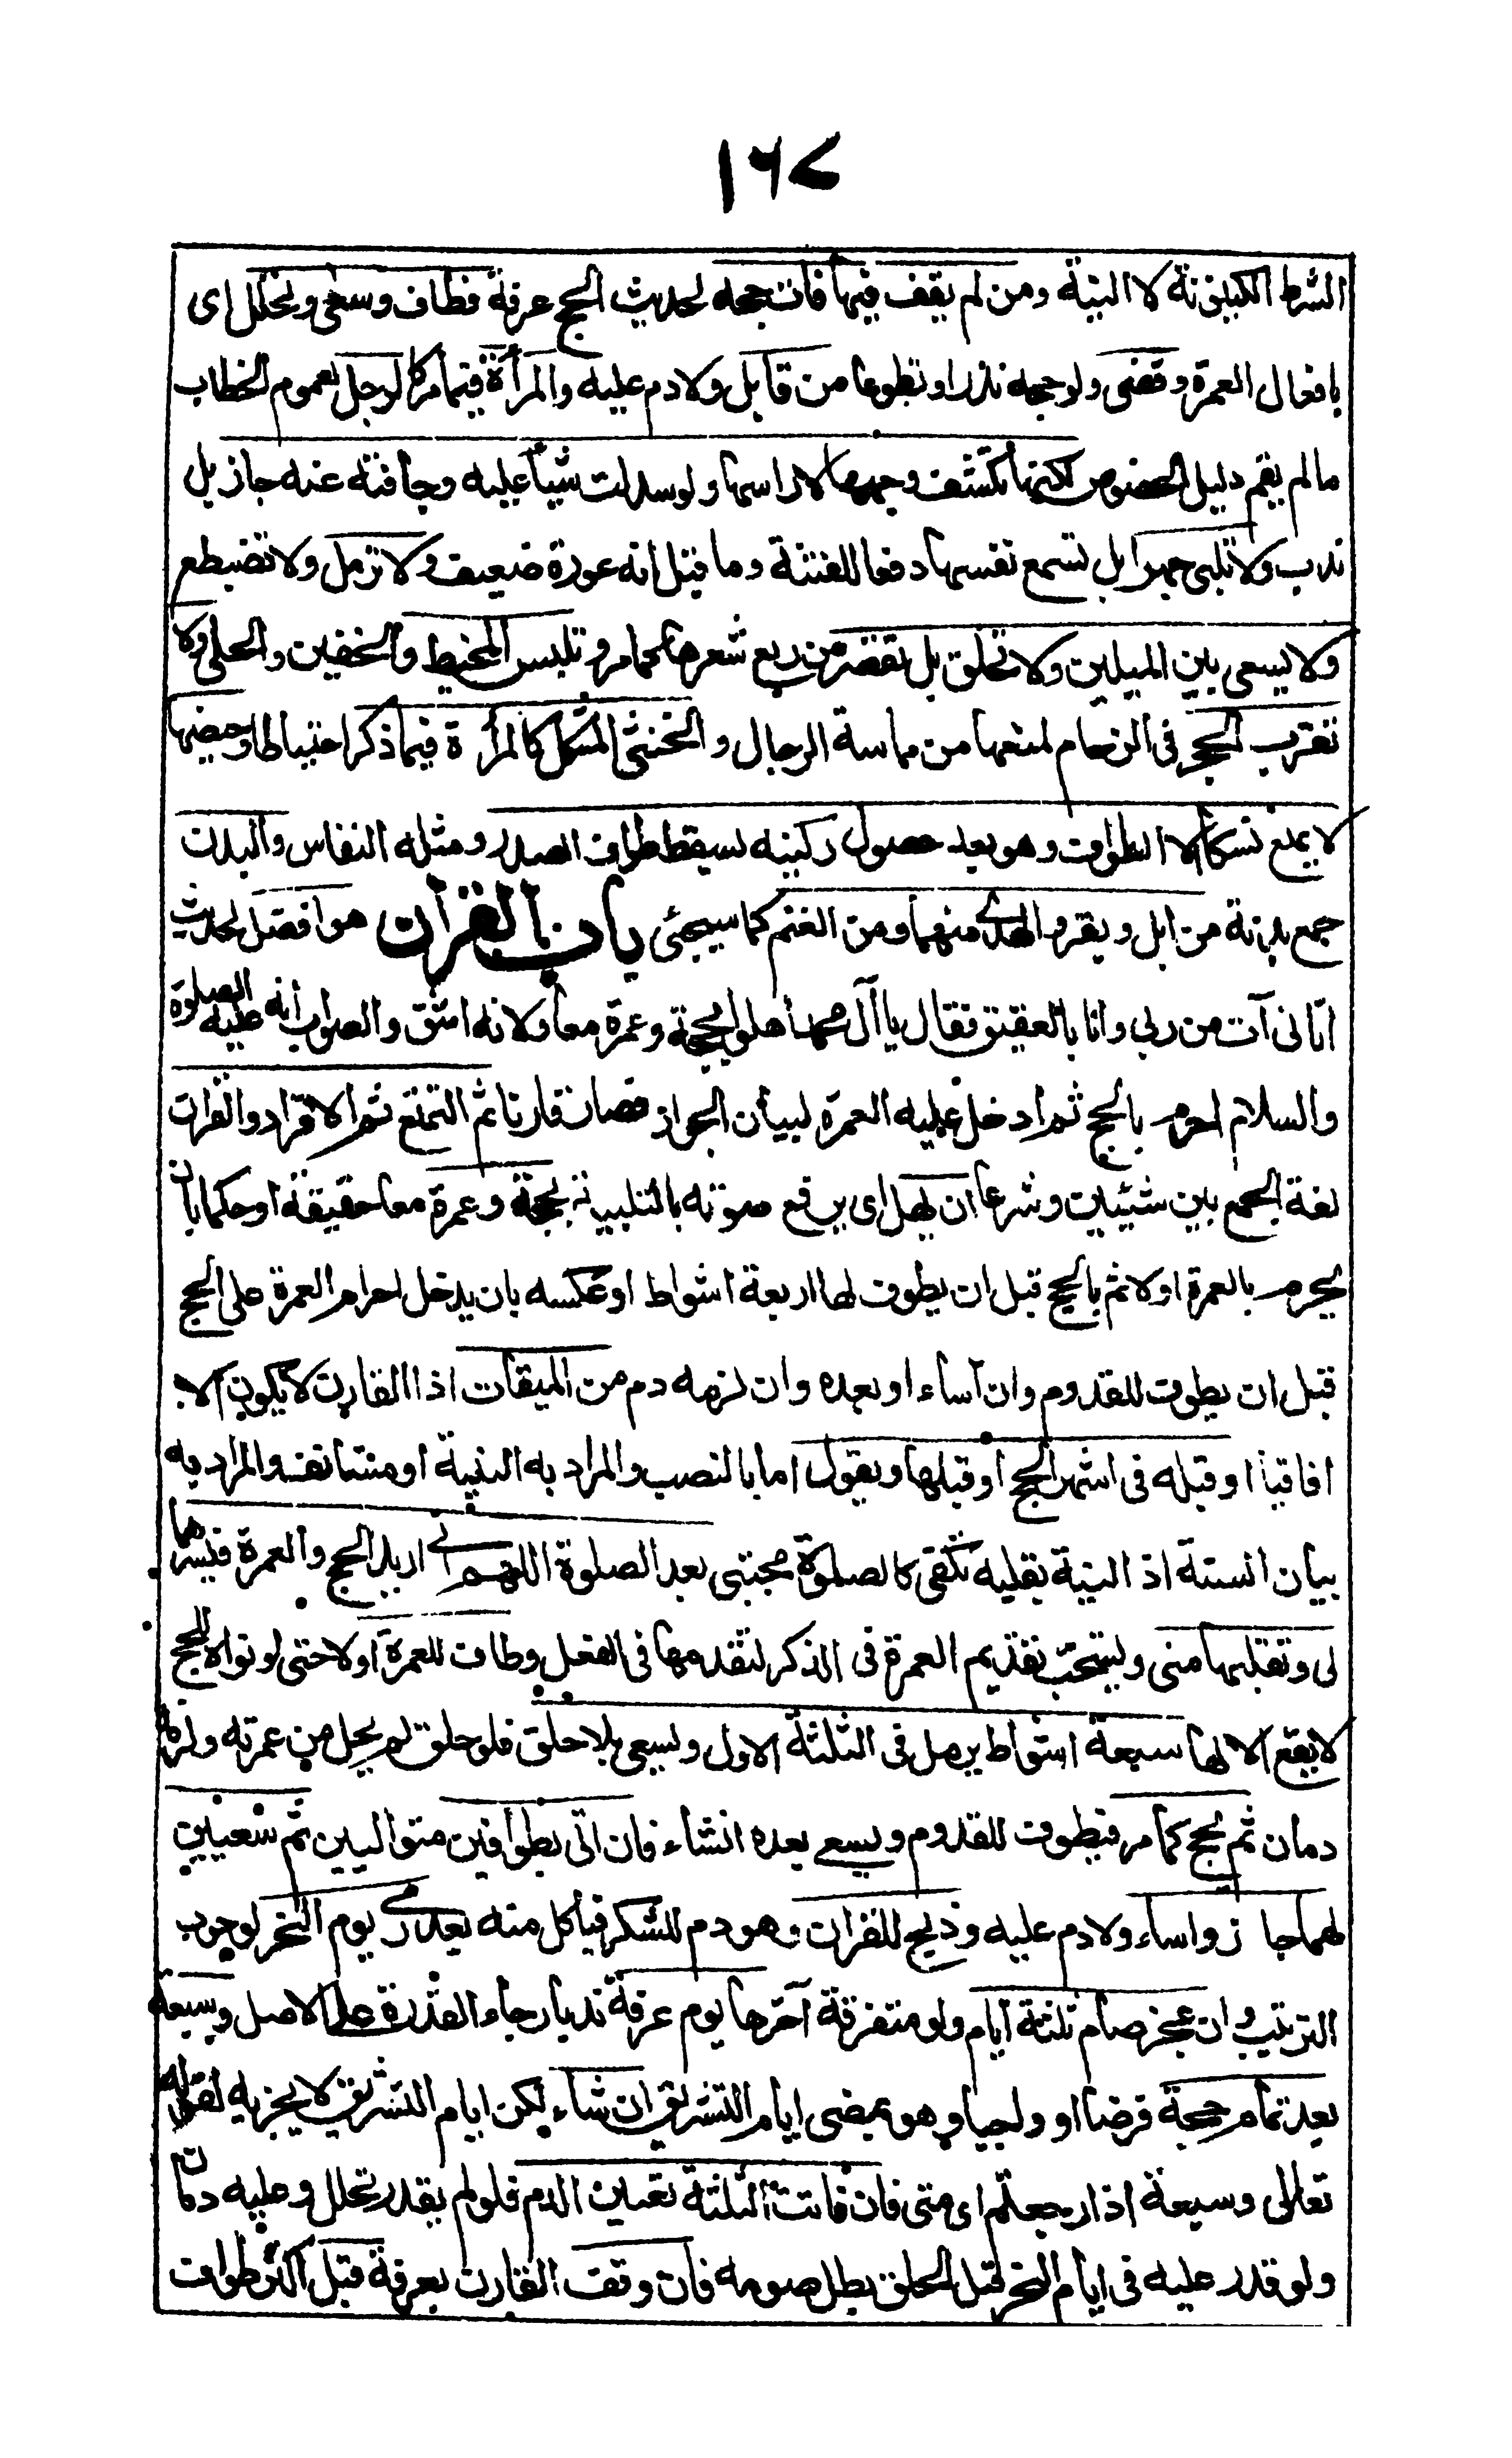 ١٦٧
الشرط الكينونة لا النية ومن لم يقف فيها فات حجه لحديث الحج عرفة فطاف وسعى وتحلل اى
بافعال العمرة وقضى ولو حجه نذرا او تطوعا من قابل ولا دم عليه والمرأة فيما مر كالرجل لعموم الخطاب
ما لم يقم دليل الخصوص لكنها تكشف وجهها لا راسها ولو سدلت شيأ عليه وجافته عنه جاز بل
ندب ولا تلبى جهرا بل تسمع نفسها دفعا للفتنة وما قيل انه عورة ضعيف ولا ترمل ولا تضبطع
ولا يسعى بين الميلين ولا تحلق بل تقصر من ربع شعرها كما مر و تلبس المخيط والخفين والحلى ولا
تقرب الحجر فى الزحام لمنعها من مماسة الرجال و الخنثى المشكل كالمرأة فيما ذكر احتياطا وحيضها
لا يمنع نسكا الا الطواف وهو بعد حصول ركنيه يسقط طواف الصدر ومثله النفاس والبدن
جمع بدنة من ابل وبقر والهدى منهما ومن الغنم كما سيجئى باب القران هو افضل لحديث
اتانى آت من ربى وانا بالعقيق فقال يا آل محمد اهلوا بحجة وعمرة معا ولانه اشق والصواب انه عليه الصلوة
والسلام احرم بالحج ثم ادخل عليه العمرة لبيان الجواز فصار قارنا ثم التمتع ثم الافراد والقران
لغة الجمع بين شيئين وشرعا ان يهل اى يرفع صوته بالتلبية بحجة وعمرة معا حقيقة او حكما بان
يحرم بالعمرة اولا ثم بالحج قبل ان يطوف لها اربعة اشواط او عكسه بان يدخل احرام العمرة على الحج
قبل ان يطوف للقدوم وان اساء او بعده وان لزمه دم من الميقات اذ القارن لا يكون الا
افاقيا او قبله فى اشهر الحج او قبلها ويقول اما بالنصب والمراد به النية او مستانف والمراد به
بيان السنة اذ النية بقلبه تكفى كالصلوة مجتبى بعد الصلوة اللهم انى اريد الحج والعمرة فيسرهما
لى وتقبلهما منى ويستحب تقديم العمرة فى الذكر لتقدمها فى الفعل وطاف للعمرة اولا حتى لو نواه للحج
لا يقع الا لها سبعة اشواط يرمل فى الثلثة الاول ويسعى بلا حلق فلو حلق لم يحل من عمرته ولزمه
دمان ثم يحج كما مر فيطوف للقدوم ويسعى بعده انشاء فان اتى بطوافين متواليين ثم سعيين
لهما جاز واساء ولا دم عليه وذبح للقران وهو دم للشكر فيأكل منه بعد رمى يوم النحر لوجوب
الترتيب وان عجز صام ثلثة ايام ولو متفرقة آخرها يوم عرفة ندبا رجاء القدرة على الاصل وسبعة
بعد تمام حجة فرضا او واجبا وهو بمضى ايام التشريق ان شاء لكن ايام التشريق لا يجزيه لقوله
تعالى وسبعة اذا رجعتم اى متى فان فاتت الثلثة تعين الدم فلو لم يقدر تحلل وعليه دمان
ولو قدر عليه فى ايام النحر قبل الحلق بطل صومه فان وقف القارن بعرفة قبل اكثر طواف